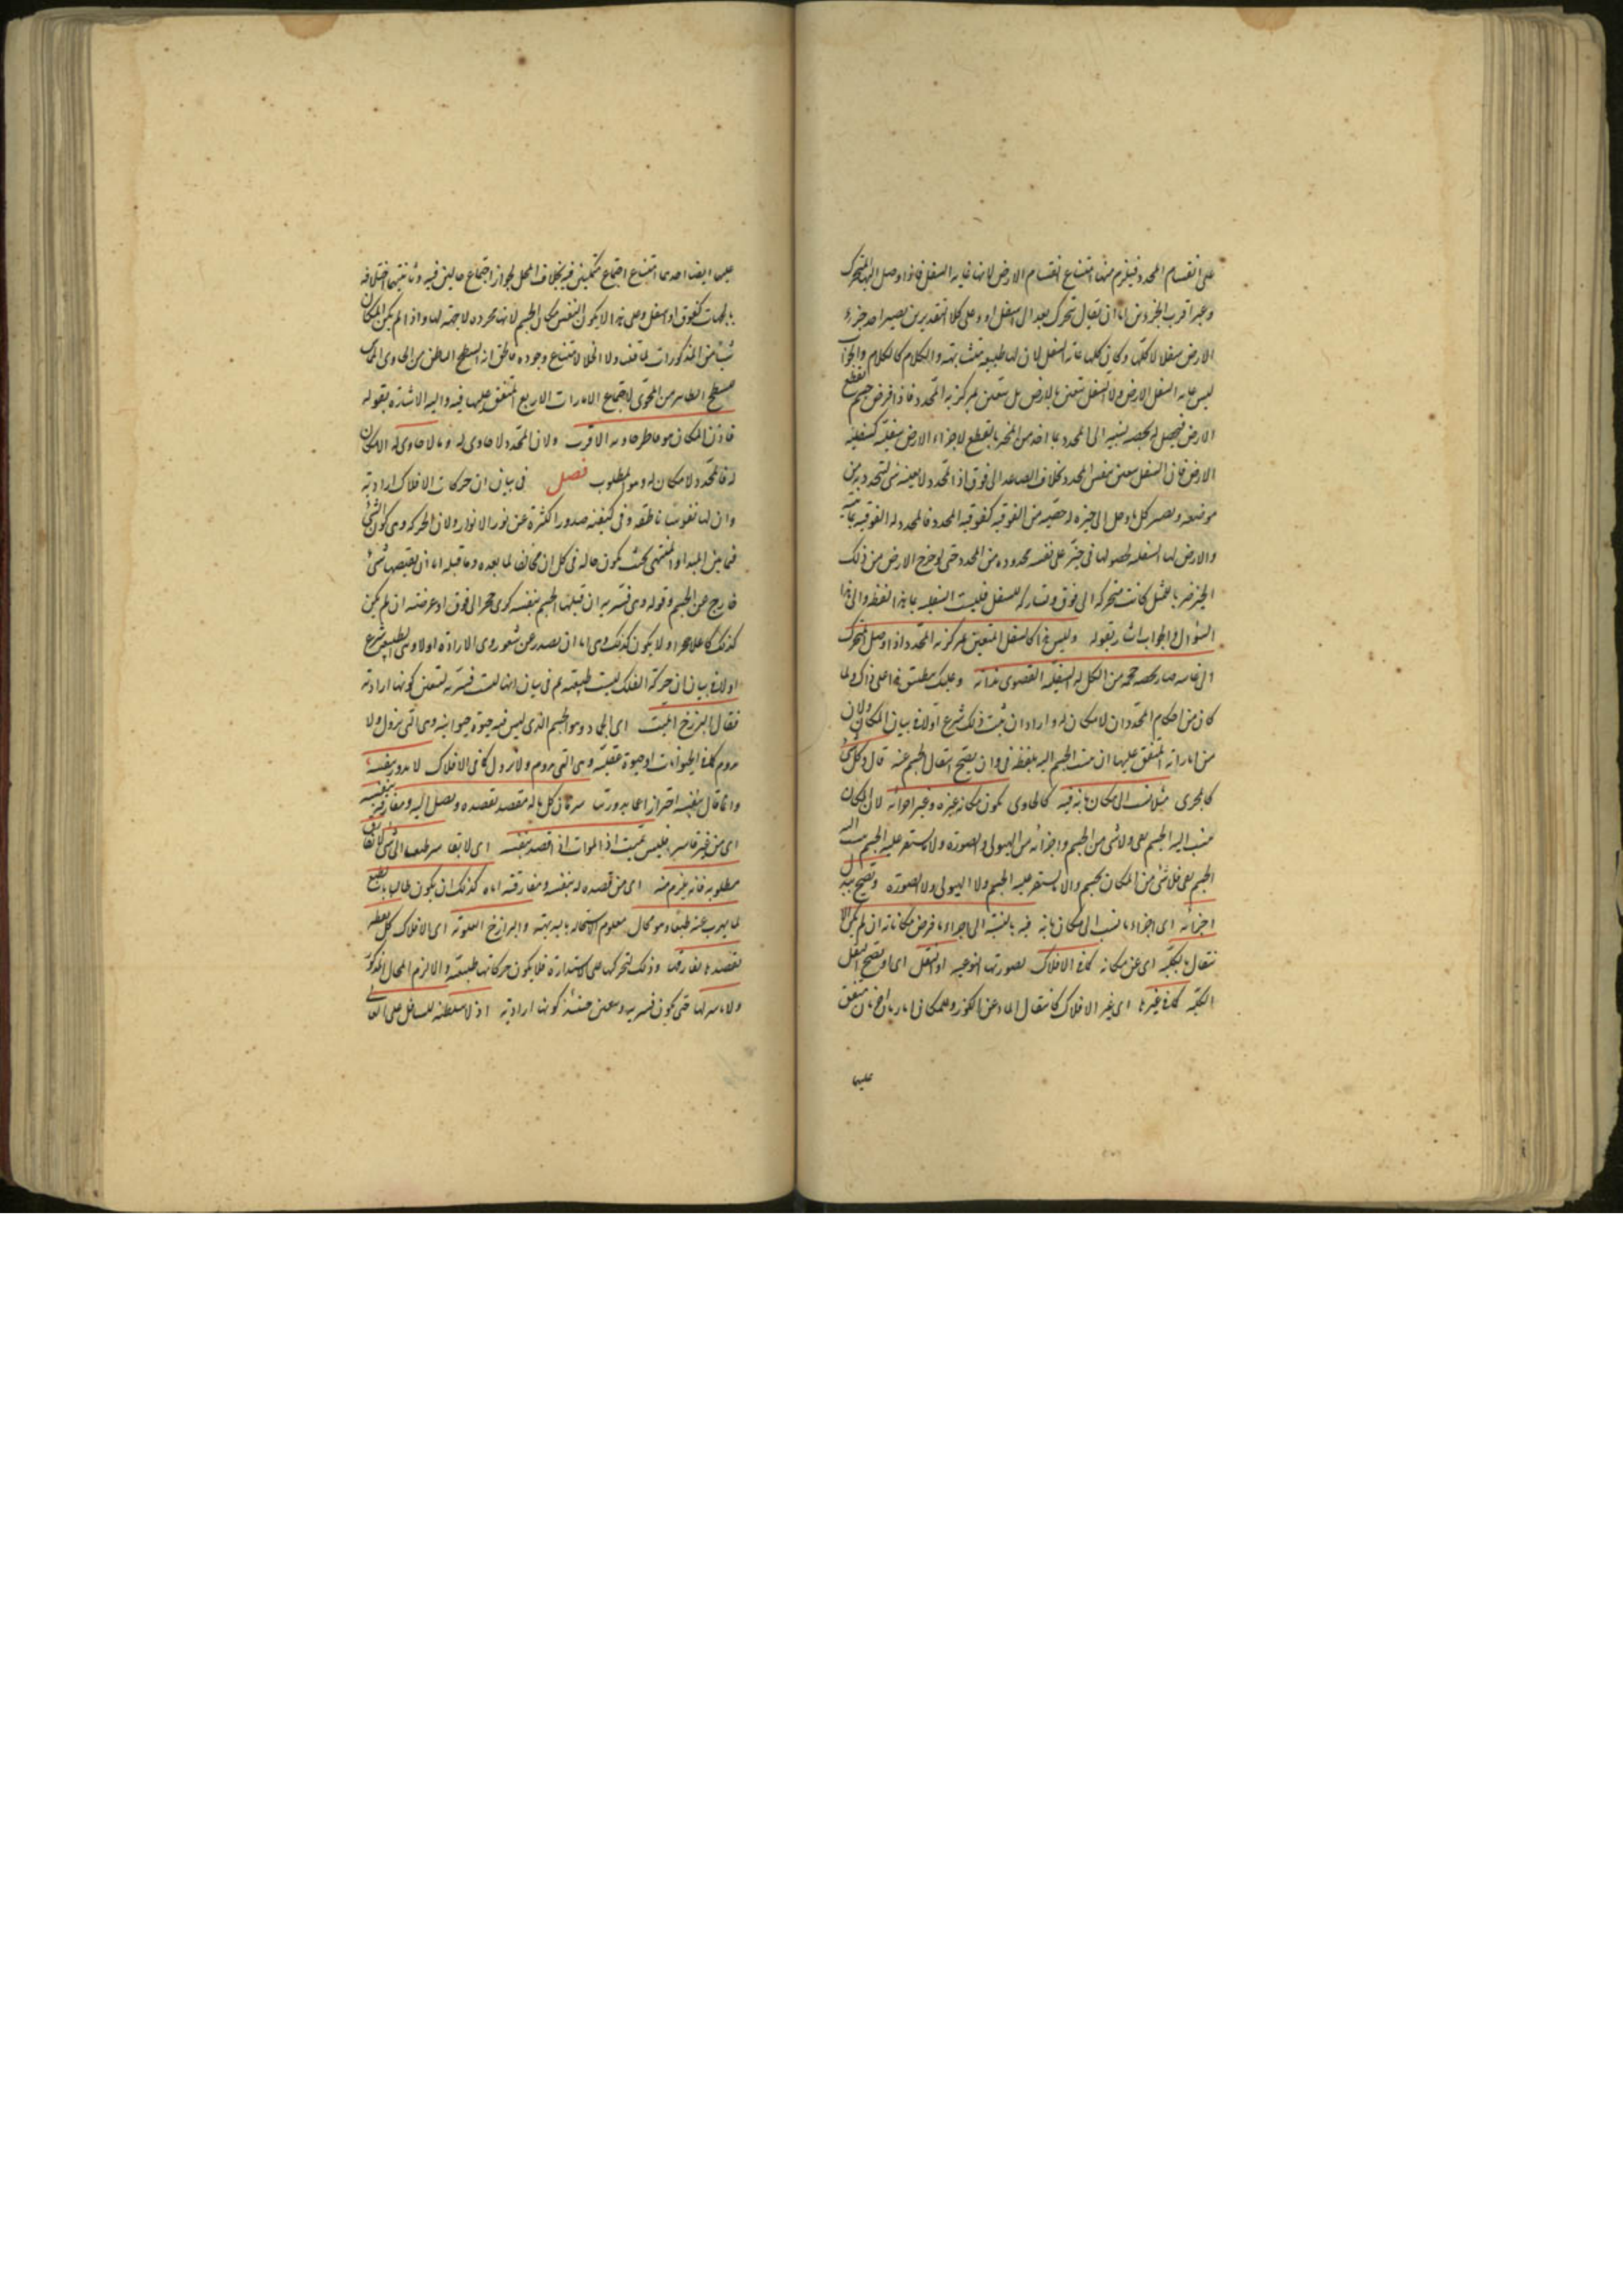 على انقسام المحدد فيلزم منها امتناع انقسام الارض لانها غاية السفل فاذا وصل اليها المتحرك
وعبر اقرب الجزءين اما ان يقال يتحرك بعد الى اسفل اولا وعلى كلا التقديرين يصير احد جزءى
الارض سفلا لا كلها وكان كلها غاية السفل لان لها طبيعة متشابهة والكلام كالكلام والجواب
ليس غاية السفل الارض ولا السفل متعين بالارض بل متعين بمركزية المحدد فاذا فرض جسم يقطع
الارض فيحصل له بحصه نسبة الى المحدد
الارض فان السفل متعين بنفس المحدد بخلاف الصاعد الى فوق اذ المحدد لا يعينه شئ لتحدد به من
موضعه ويصير كل ما وصل الى حيزه له حصة من الفوقية كفوقية المحدد فالمحدد له الفوقية بذاته
والارض لها السفلية لحصولها فى حيز على نفسه محدوده من المحدد حتى لو خرج الارض من ذلك
الحيز ضربا للمثل كانت متحركة الى فوق وتاركة للسفل فليست السفلية بهذا اللفظ والى هذا
السؤال والجواب اشار بقوله وليس هذا كالسفل المتعين بمركزية المحدد اذا وصل المتحرك
الى غايته صار بحصة حجمه من الكل له السفلية القصوى بذاته وعليك بتطبيق هذا على ذاك ولما
كان من احكام المحدد ان لا مكان له واراد ان يثبت ذلك شرع اولا فى بيان المكان ولان
من اماراته المتفق عليها ان ينسب الجسم اليه بلفظة فى وان يصح انتقال الجسم عنه قال وكل شئ
كما يجرى مثلا نسب الى مكان بانه فيه كالحاوى يكون مكانه غيره وغير اجزائه لان المكان
ينسب اليه الجسم بفى ولا شئ من الجسم واجزائه من الهيولى والصورة ولا يستقر عليه الجسم ينسب اليه
الجسم بفى فلا شئ من المكان بجسم ولا يستقر عليه الجسم ولا الهيولى ولا الصورة ويصح تبدل
اجزائه اى اجزاء ما نسب الى مكان بانه فيه بالنسبة الى اجزاء ما فرض مكانا له ان لم يكن الا
نتقال بالكلية اى عن مكانه كما فى الافلاك بصورتها النوعية او النقل اى او يصح النقل
بالكلية كما فى غيرها اى غير الافلاك كانتقال الماء عن الكوز وللمكان امارتان اخريان متفق
عليهما
عليهما ايضا احديهما امتناع اجتماع متمكنين فيه بخلاف المحل لجواز اجتماع حالين فيه وثانيتهما اختلافه
بالجهات كفوق او اسفل وعلى هذا لا يكون النفس مكان الجسم لانها مجردة لا جهة لها واذا لم يكن المكان
شيئا من المذكورات لما تقف ولا الخلاء لامتناع وجوده فاطلق انه السطح الباطن من الحاوى المماس
للسطح الظاهر من المحوى لاجتماع الامارات الاربع المتفق عليها فيه واليه الاشارة بقوله
فاذن المكان هو باطن حاويه الاقرب ولان المحدد لا حاوى له وما لا حاوى له لا مكان
له فالمحدد لا مكان له وهو المطلوب فصل فى بيان ان حركات الافلاك ارادية
وان لها نفوسا ناطقة وفى كيفية صدور الكثرة عن نور الانوار ولان الحركة وهى كون الشئ
فيما بين المبدا والمنتهى بحيث يكون حاله فى كل آن مخالفا لما بعده وما قبله اما ان يقتضيها شئ
خارج عن الجسم وقوله وهى قسرية ان قبلها الجسم بنفسه كرمى حجر الى فوق او عرضية ان لم يكن
كذلك كما على حجر اولا يكون كذلك وهى اما ان تصدر عن شعور وهى الارادة اولا وهى الطبيعية شرع
اولا فى بيان ان حركة الفلك ليست طبيعية ثم فى بيان انها ليست قسرية لتعين كونها ارادية
فقال البرزخ الميت اى الجماد وهو الجسم الذى ليس فيه حيوة حيوانية وهى التى تزول ولا
تدوم كما فى الحيوانات او حيوة عقلية وهى التى تدوم ولا تزول كما فى الافلاك لا يدور بنفسه
وانما قال بنفسه احترازا عما يدور بقاسر فان كل ما له مقصد يقصده ويصل اليه ويفارقه بنفسه
اى من غير قاسر فليس بميت اذ الموات اذا قصد بنفسه اى لا بقاسر طبعا الى شئ لا يفارق
مطلوبه فانه يلزم منه اى من قصده له بنفسه ومفارقته اياه كذلك ان يكون طالبا بالطبع
لما يهرب عنه طبعا وهو محال معلوم الاستحالة بالبديهة والبرازخ العلوية اى الافلاك كل نقطة
تقصدها تفارقها وذلك لتحركها على الاستدارة فلا يكون حركاتها طبيعية والا لزم المحال المذكور
ولا قاسر لها حتى يكون قسرية وتعين حينئذ كونها ارادية اذ لا سلطنة للسافل على العالى